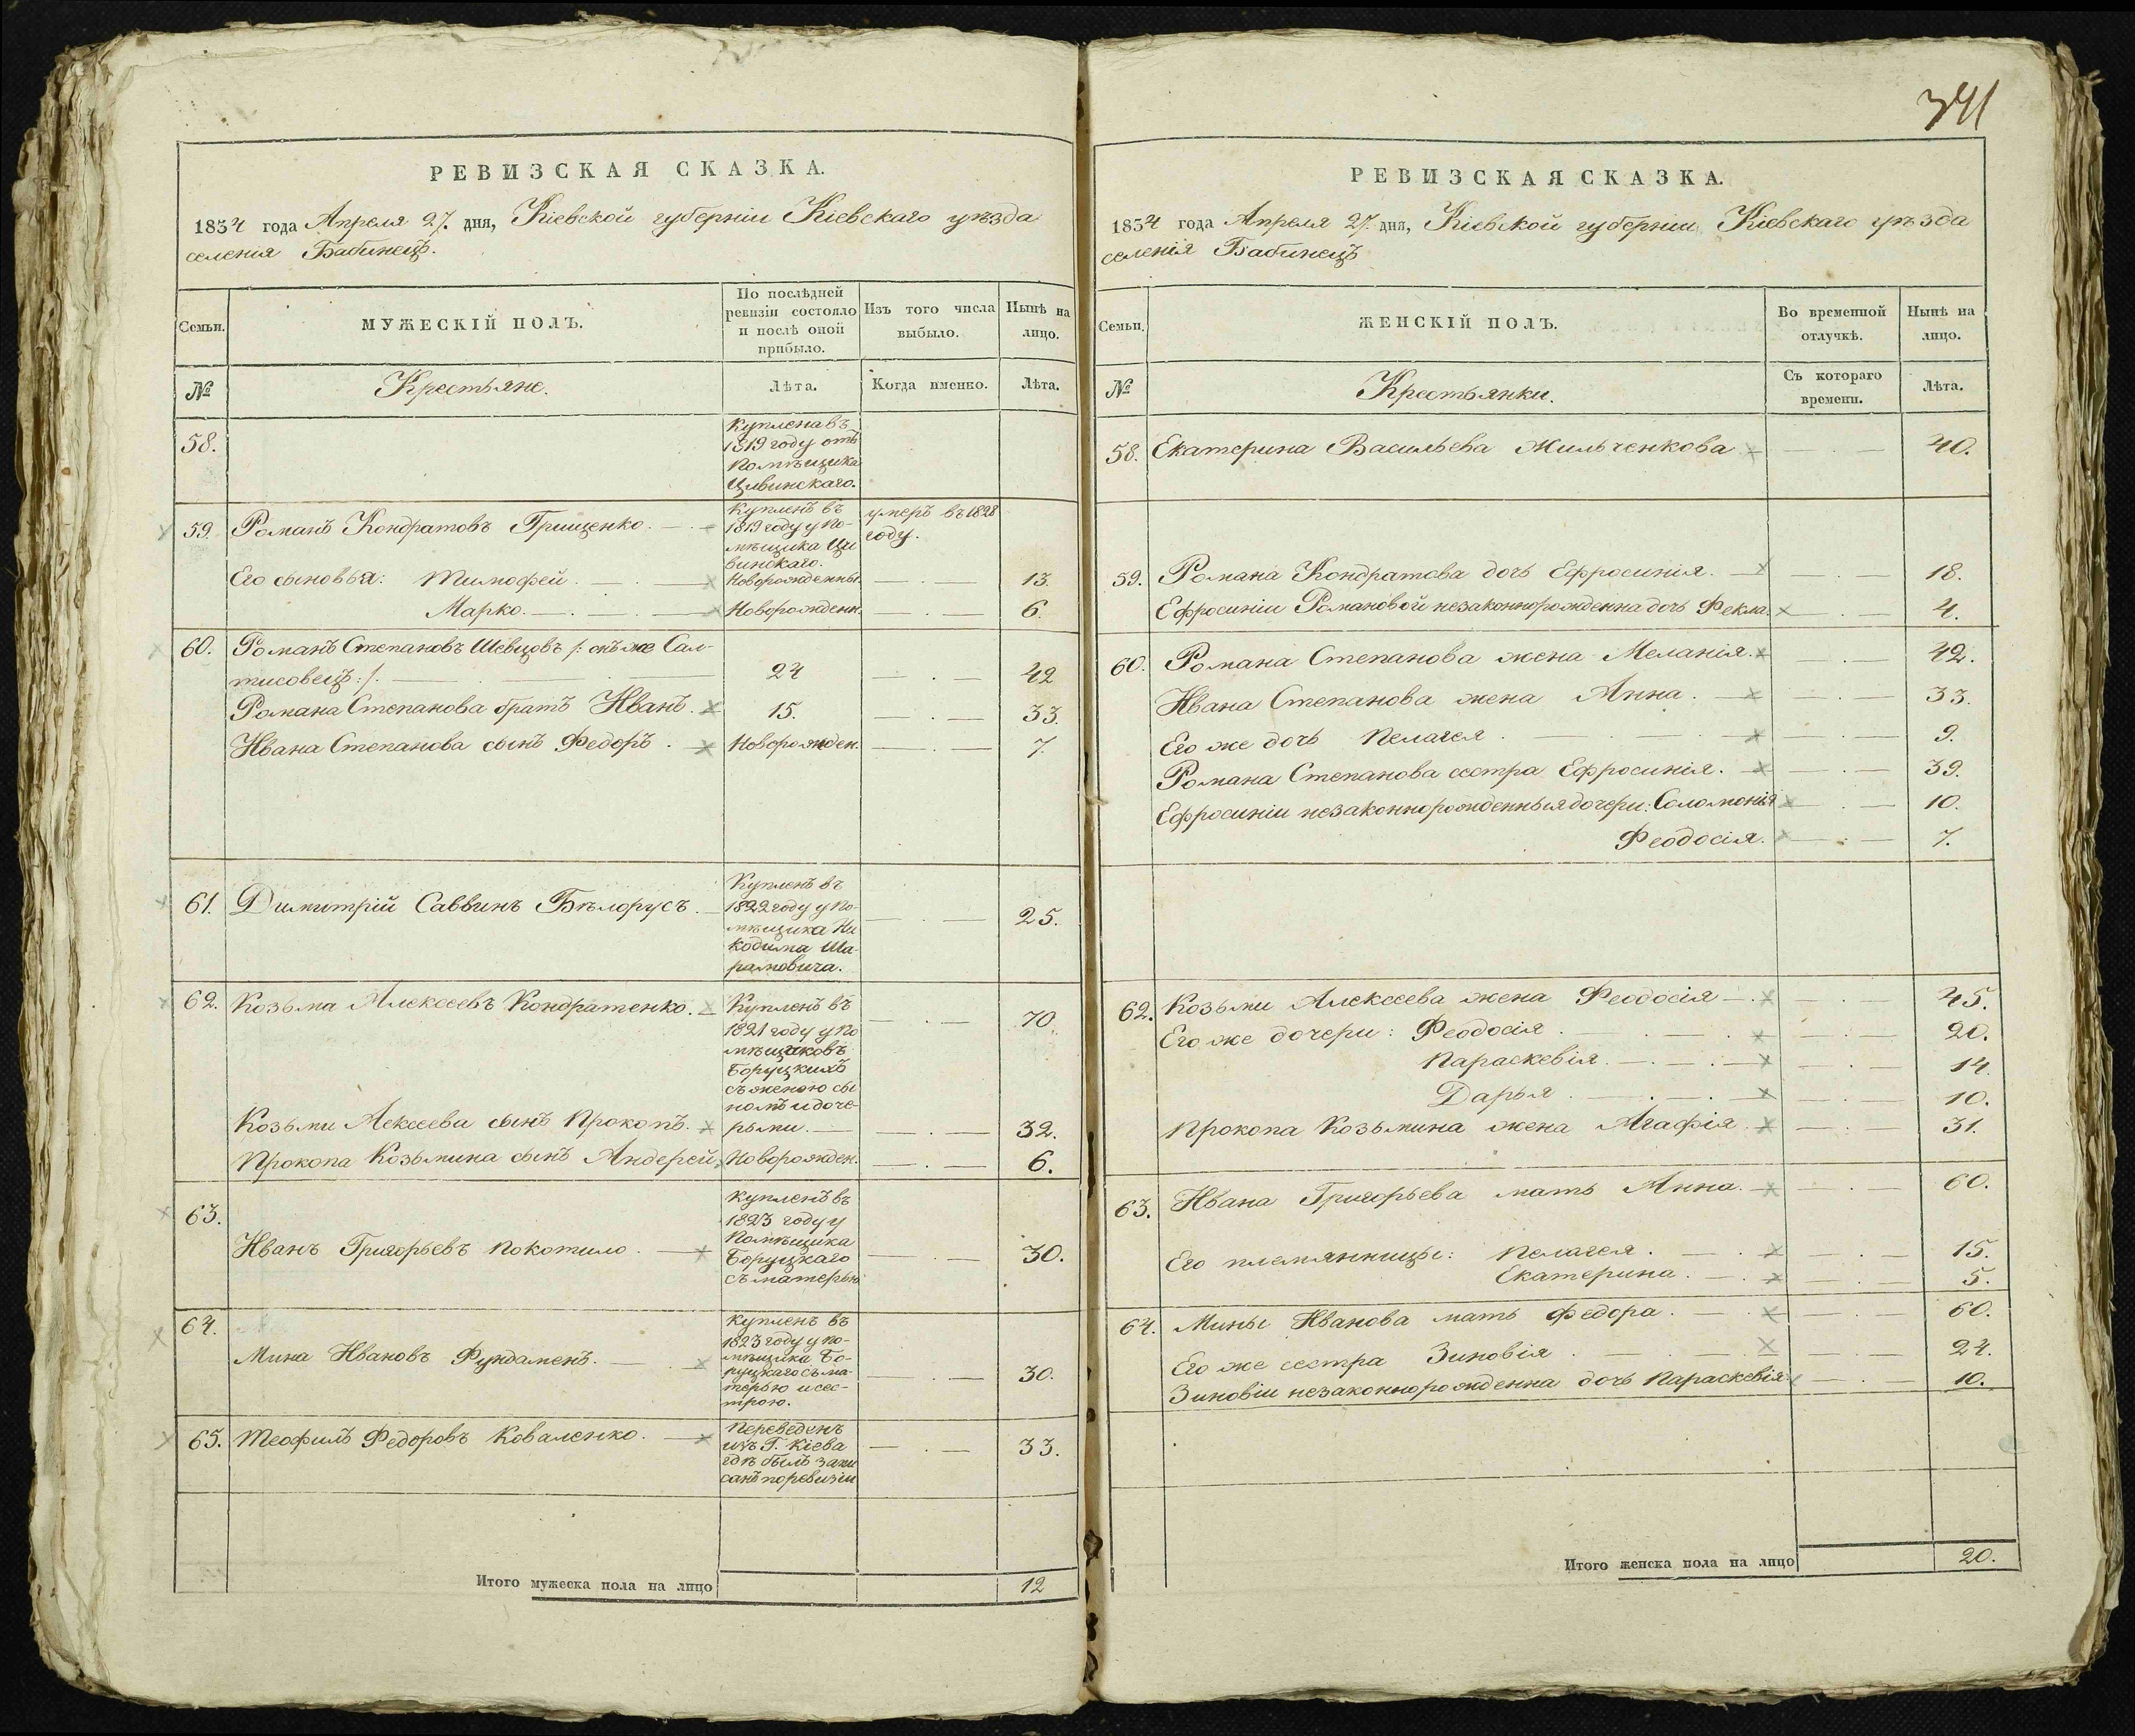 341
РЕВИЗСКАЯ СКАЗКА.
1834 года Апреля 27. дня, Кіевской губерніи Кіевскаго уѣзда
селенія Бабинецъ.
Семьи.
МУЖЕСКІЙ ПОЛЪ.
По послѣдней
ревизіи состояло
и послѣ оной
прибыло.
Изъ того числа
выбыло.
Нынѣ на
лицо.
№
Крестьяне.
Лѣта.
Когда именно.
Лѣта.
58.
Куплена въ
1819 году отъ
Помѣщика
Цивинскаго.
59. Романъ Кондратовъ Грищенко.
Купленъ въ
1819 году у По-
мѣщика Ци
винскаго.
умеръ въ 1828
году.
Его сыновья: Тимофей. Новорожденны. 13.
Марко. Новорожденн. 6.
60. Романъ Степановъ Шевцовъ /: онъ же Сал-
тисовецъ :/. 24 42
Романа Степанова братъ Иванъ. 15. 33.
Ивана Степанова сынъ Федоръ. Новорожден. 7.
61. Димитрій Саввинъ Бѣлорусъ. 25.
Купленъ въ
1822 году у По-
мѣщика Ни
кодима Ша-
рамовича.
62. Козьма Алексеевъ Кондратенко. 70.
Купленъ въ
1821 году у По
мѣщиковъ
Боруцкихъ
съ женою сы
номъ и доче-
Козьми Алексеева сынъ Прокопъ. рьми. 32.
Прокопа Козьмина сынъ Андерей. Новорожден. 6.
63.
Купленъ въ
1823 году у
Помѣщика
Иванъ Григорьевъ Покотило. Боруцкаго 30.
съ матерью
64.
Купленъ въ
1823 году у По-
Мина Ивановъ Фундаменъ. мѣщика Бо-
руцкаго съ ма- 30.
терью и сес-
трою.
65. Теофилъ Федоровъ Коваленко. Переведенъ
изъ Г. Кіева 33.
гдѣ былъ запи
санъ по ревизіи
Итого мужеска пола на лицо 12
РЕВИЗСКАЯ СКАЗКА.
1834 года Апреля 27. дня, Кіевской губерніи Кіевскаго уѣзда
селенія Бабинецъ
Семьи.
ЖЕНСКІЙ ПОЛЪ.
Во временной
отлучкѣ.
Нынѣ на
лицо.
№
Крестьянки.
Съ котораго
времени.
Лѣта.
58. Екатерина Васильева Мильченкова 40.
59. Романа Кондратова дочь Ефросинія. 18.
Ефросиніи Романовой незаконнорожденна дочь Фекла. 4.
60. Романа Степанова жена Меланія. 42.
Ивана Степанова жена Анна. 33.
Его же дочь Пелагея. 9.
Романа Степанова сестра Ефросинія. 39.
Ефросиніи незаконнорожденныя дочери: Соломонія 10.
Феодосія. 7.
62. Козьми Алексеева жена Феодосія 45.
Его же дочери: Феодосія. 20.
Параскевія. 14.
Дарья. 10.
Прокопа Козьмина жена Агафія. 31.
63. Ивана Григорьева мать Анна. 60.
Его племянницы: Пелагея. 15.
Екатерина. 5.
64. Мины Иванова мать Федора. 60.
Его же сестра Зиновія. 24.
Зиновіи незаконнорожденна дочь Параскевія 10.
Итого женска пола на лицо 20.